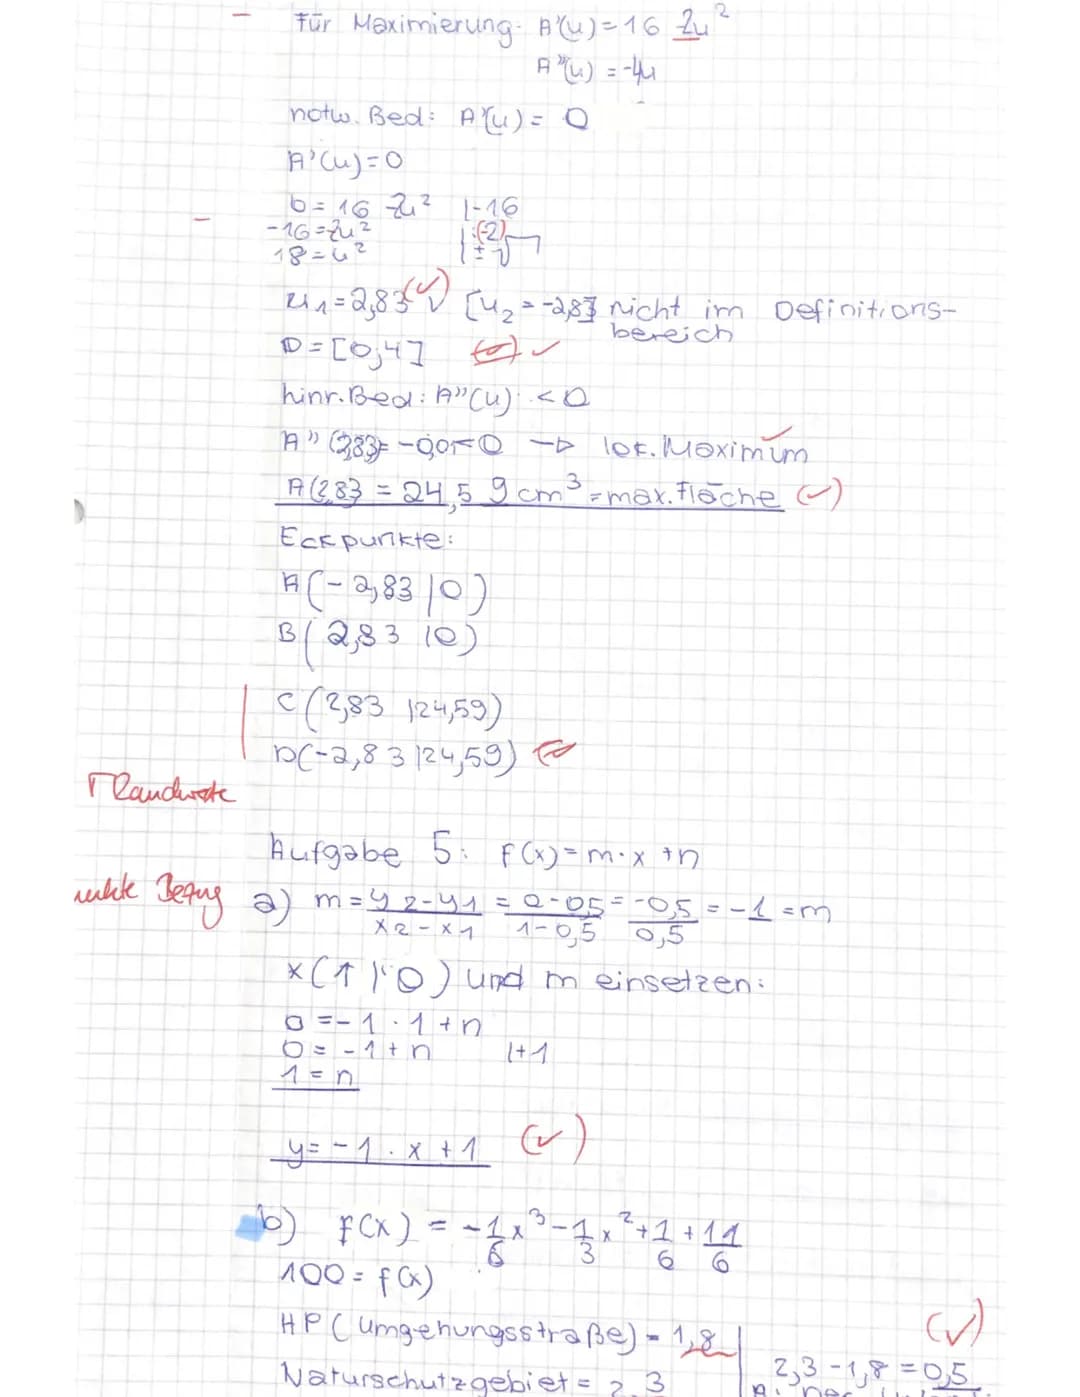 Für Maximierung: A'(u) = 16 2u²
A''(u) = -4u
notw. Bed: A'(u) = 0
A'(u) = 0
0 = 16 2u² |-16
-16 = 2u² |:(-2)
18 = u² |±√
u₁ = 2,83 (✓) ✓ [u₂ = -2,83] nicht im Definitions-
bereich
D = [0,4] ✓
hinr. Bed: A''(u) < 0
A''(2,83) = -0,01 < 0 → lok. Maximum ✓
A(2,83 = 24,59 cm³ = max. Fläche (✓)
Eckpunkte:
A(-2,83|0)
B(2,83|0)
C(2,83|24,59)
D(-2,83|24,59)
Γ Randwerte
Aufgabe 5: f(x) = m·x+n
Bezug
a) m = y2-y1/x2-x1 = 0-0,5/1-0,5 = -0,5/0,5 = -1 = m
x(1|0) und m einsetzen:
0 = -1·1+n
0 = -1+n |+1
1 = n
y = -1·x+1 (✓)
b) f(x) = -1/6x³-1/3x²+1/6+11/6
100 = f(x)
HP (Umgehungsstraße) = 1,8 (✓)
Naturschutzgebiet = 2,3
2,3-1,8 = 0,5